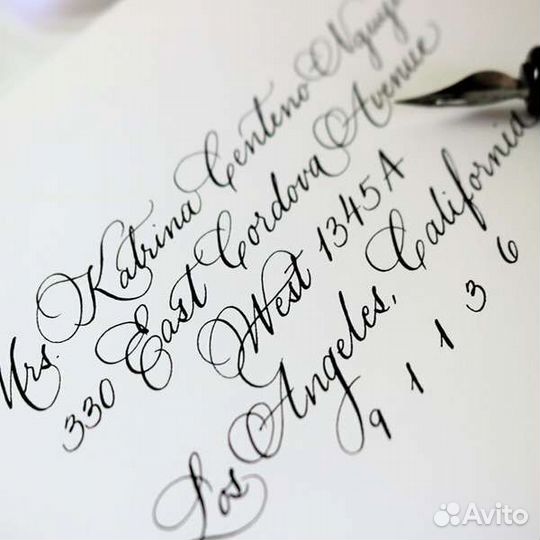 Mrs. Katrina Centeno
330 East Cordova Avenue
West 1345A
Los Angeles, California
91136
Avito